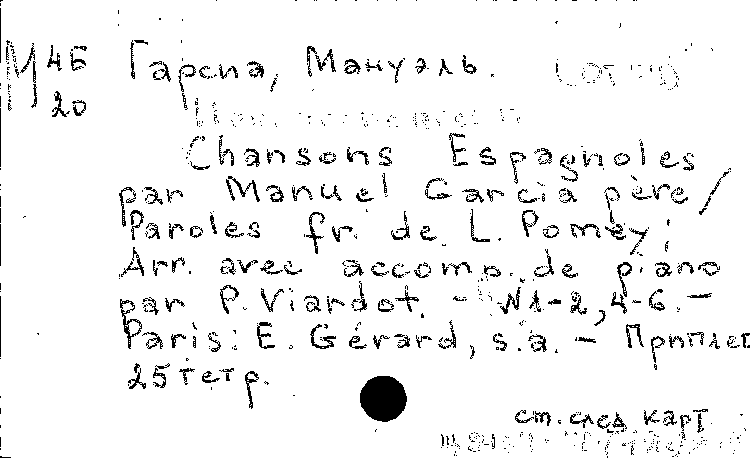 М 4Б Гарсиа, Мануэль. (отец)
20
Chansons Espagnoles
par Manuel Garcia père /
Paroles fr. de L. Pomey;
Arr. avec accomp. de piano
par P. Viardot. - N 1-2, 4-6. -
Paris: E. Gérard, s.a. - Приплет
25 тетр.
ст. след карт